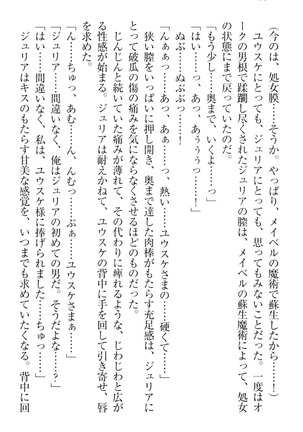 （今のは、処女膜……そうか。やっぱり、メイベルの魔術で蘇生したから……！）
ユウスケにとっても、ジュリアにとっても、思ってもみないことだった。一度はオ
ークの男根で蹂躙し尽くされたジュリアの膣は、メイベルの蘇生魔術によって、処女
の状態にまで戻っていたのだ。
「もう少し……奥まで、いくよ……っ」
「はい……っ、あっ、あぅ、ぅぅっ……！」
ぬぶっ……ぬぶぅ……っ。
「んぁぁっ……あっ、っ、熱い……ユウスケさまの……硬くて……」
狭い膣をいっぱいに押し開き、奥まで達した肉棒がもたらす充足感は、ジュリアに
とって破瓜の傷の痛みを気にならなくさせるほどのものだった。
じんじんと続いていた痛みが薄れて、その代わりに痺れるような、じわじわと広が
る性感が始まる。ジュリアは耐えかねて、ユウスケの背中に手を回して引き寄せ、唇
を求めた。
「ん……ちゅっ、あむ……ん、んむっ……ぷぁ……ユウスケさまぁ……」
「ジュリア……間違いなく、俺はジュリアの初めての男だ。そうだよな……？」
「はい……間違いなく、私は、ユウスケ様に捧げられました……ちゅっ……」
ジュリアはキスのもたらす甘美な感覚を、いつまでも求めていたくなる。背中に回